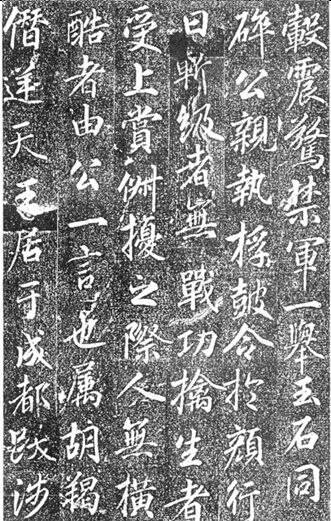 轂震驚禁軍一舉玉石同
碎公親執桴皷令於顏行
曰斬級者無戰功擒生者
受上賞俶擾之際人無橫
酷者由公一言也属胡羯
僭逆天王居于成都跋涉